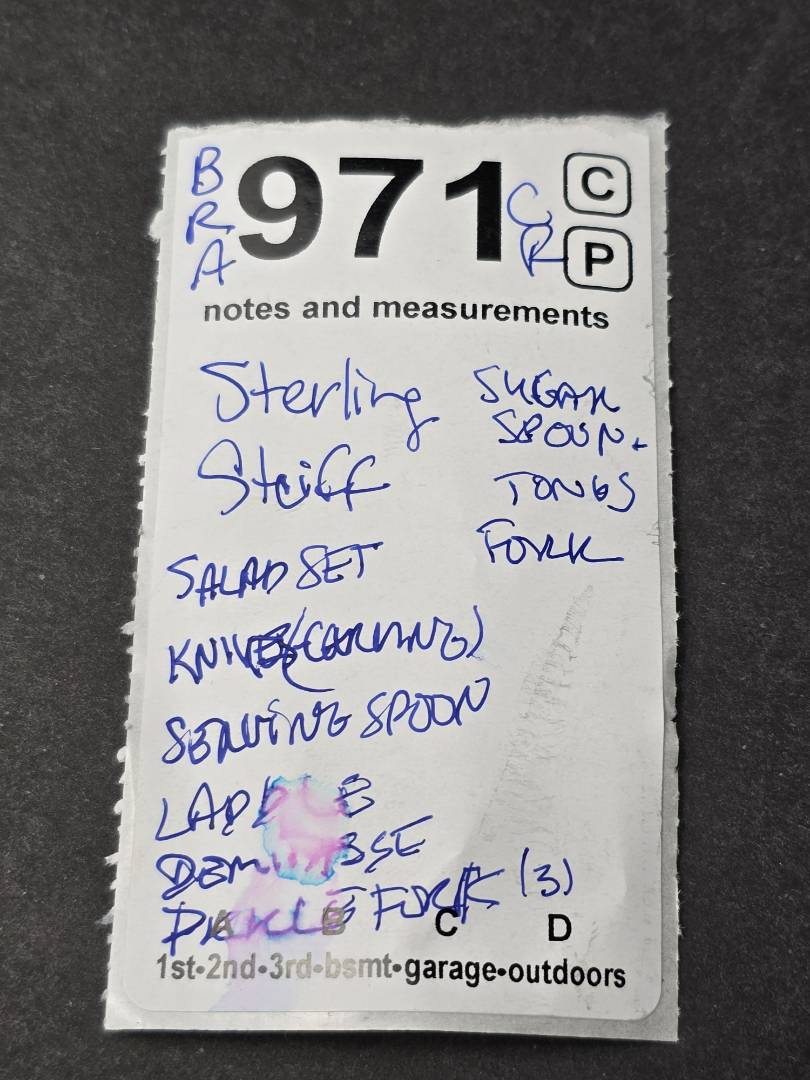 BRA 971 CR C P
notes and measurements
Sterling
Stieff
SALAD SET
KNIVES (CARVING)
SERVING SPOON
LADDLE
DEMI SSE
PICKLE FORK (3)
SUGAR
SPOON.
TONGS
FORK
A B C D
1st•2nd•3rd•bsmt•garage•outdoors